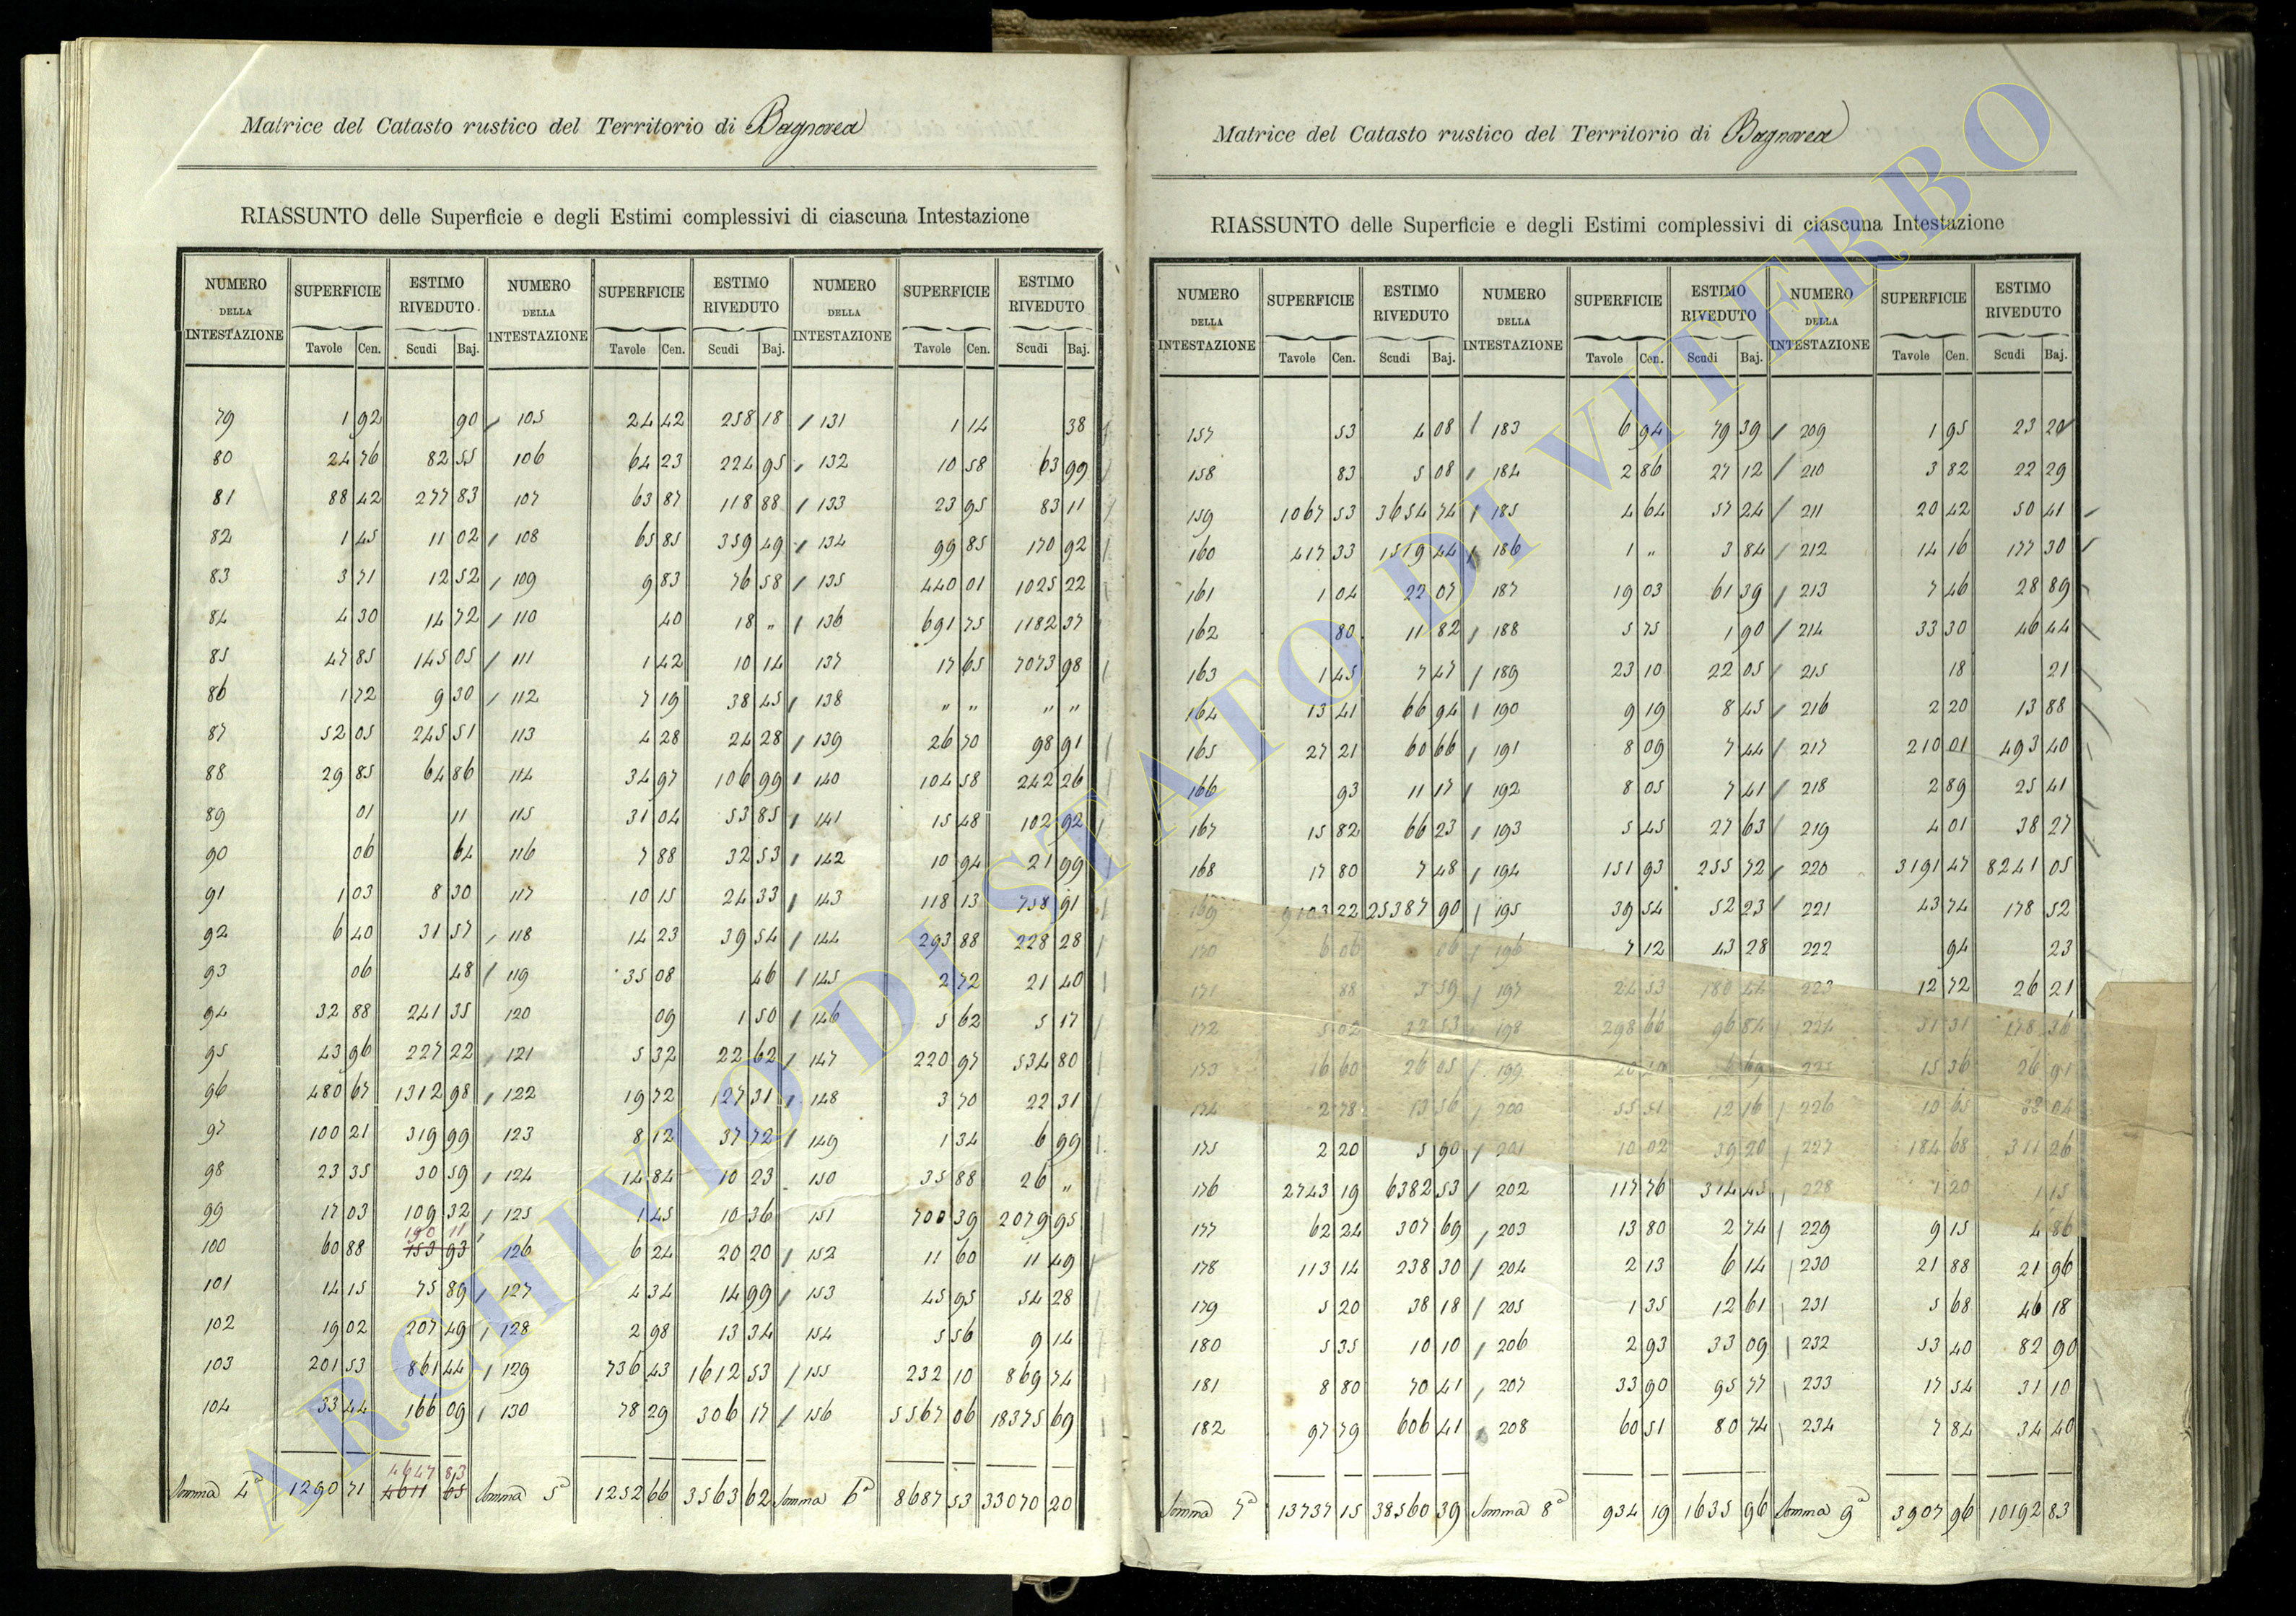 Matrice del Catasto rustico del Territorio di Bagnorea
RIASSUNTO delle Superficie e degli Estimi complessivi di ciascuna Intestazione
NUMERO DELLA INTESTAZIONE SUPERFICIE ESTIMO RIVEDUTO NUMERO DELLA INTESTAZIONE SUPERFICIE ESTIMO RIVEDUTO NUMERO DELLA INTESTAZIONE SUPERFICIE ESTIMO RIVEDUTO
Tavole Cen. Scudi Baj. Tavole Cen. Scudi Baj. Tavole Cen. Scudi Baj.
79 1 92 90 105 24 42 258 18 131 1 14 38
80 24 76 82 55 106 64 23 224 95 132 10 58 63 99
81 88 42 277 83 107 63 87 118 88 133 23 95 83 11
82 1 45 11 02 108 65 85 359 49 134 99 85 170 92
83 3 71 12 52 109 9 83 76 58 135 440 01 1025 22
84 4 30 14 72 110 40 18 „ 136 691 75 1182 37
85 47 85 145 05 111 1 42 10 14 137 17 65 7073 98
86 1 72 9 30 112 7 19 38 45 138 „ „ „ „
87 52 05 245 51 113 4 28 24 28 139 26 70 98 91
88 29 85 64 86 114 34 97 106 99 140 104 58 242 26
89 01 11 115 31 04 53 85 141 15 48 102 92
90 06 64 116 7 88 32 53 142 10 94 21 99
91 1 03 8 30 117 10 15 24 33 143 118 13 758 91
92 6 40 31 57 118 14 23 39 54 144 293 88 228 28
93 06 48 119 35 08 46 145 2 72 21 40
94 32 88 241 35 120 09 1 50 146 5 62 5 17
95 43 96 227 22 121 5 32 22 62 147 220 97 534 80
96 480 67 1312 98 122 19 72 127 31 148 3 70 22 31
97 100 21 319 99 123 8 12 37 72 149 1 34 6 99
98 23 35 30 59 124 14 84 10 23 150 35 88 26 „
99 17 03 109 32 125 1 45 10 36 151 700 39 2079 95
190 11
100 60 88 153 93 126 6 24 20 20 152 11 60 11 49
101 14 15 75 89 127 4 34 14 99 153 45 95 54 28
102 19 02 207 49 128 2 98 13 34 154 5 56 9 14
103 201 53 861 44 129 736 43 1612 53 155 232 10 869 74
104 33 44 166 09 130 78 29 306 17 156 5567 06 18375 69
4647 83
Somma 4ª 1290 71 4611 65 Somma 5ª 1252 66 3563 62 Somma 6ª 8687 53 33070 20
Matrice del Catasto rustico del Territorio di Bagnorea
RIASSUNTO delle Superficie e degli Estimi complessivi di ciascuna Intestazione
NUMERO DELLA INTESTAZIONE SUPERFICIE ESTIMO RIVEDUTO NUMERO DELLA INTESTAZIONE SUPERFICIE ESTIMO RIVEDUTO NUMERO DELLA INTESTAZIONE SUPERFICIE ESTIMO RIVEDUTO
Tavole Cen. Scudi Baj. Tavole Cen. Scudi Baj. Tavole Cen. Scudi Baj.
157 53 4 08 183 6 94 79 39 209 1 95 23 20
158 83 5 08 184 2 86 27 12 210 3 82 22 29
159 1067 53 3654 74 185 4 64 57 24 211 20 42 50 41
160 417 33 1519 44 186 1 „ 3 84 212 14 16 177 30
161 1 04 22 07 187 19 03 61 39 213 7 46 28 89
162 80 11 82 188 5 75 1 90 214 33 30 46 44
163 1 45 7 47 189 23 10 22 05 215 18 21
164 13 41 66 94 190 9 19 8 45 216 2 20 13 88
165 27 21 60 66 191 8 09 7 44 217 210 01 493 40
166 93 11 17 192 8 05 7 41 218 2 89 25 41
167 15 82 66 23 193 5 45 27 63 219 4 01 38 27
168 17 80 7 48 194 151 93 255 72 220 3191 47 8241 05
169 9103 22 25387 90 195 39 54 52 23 221 43 74 178 52
170 6 06 06 196 7 12 43 28 222 94 23
171 88 3 59 197 24 53 180 44 223 12 72 26 21
172 5 02 32 53 198 298 66 96 84 224 31 31 178 36
173 16 60 26 05 199 6 69 225 15 36 26 91
174 2 78 13 56 200 55 51 12 16 226 10 65 38 04
175 2 20 5 90 201 10 02 39 20 227 184 68 311 26
176 2743 19 6382 53 202 117 76 374 45 228 1 20 1 15
177 62 24 307 69 203 13 80 2 74 229 9 15 4 86
178 113 14 238 30 204 2 13 6 14 230 21 88 21 96
179 5 20 38 18 205 1 35 12 61 231 5 68 46 18
180 5 35 10 10 206 2 93 33 09 232 53 40 82 90
181 8 80 70 41 207 33 90 95 77 233 17 54 31 10
182 97 79 606 41 208 60 51 80 74 234 7 84 34 40
Somma 7ª 13737 15 38560 39 Somma 8ª 934 19 1635 96 Somma 9ª 3907 96 10192 83
ARCHIVIO DI STATO DI VITERBO